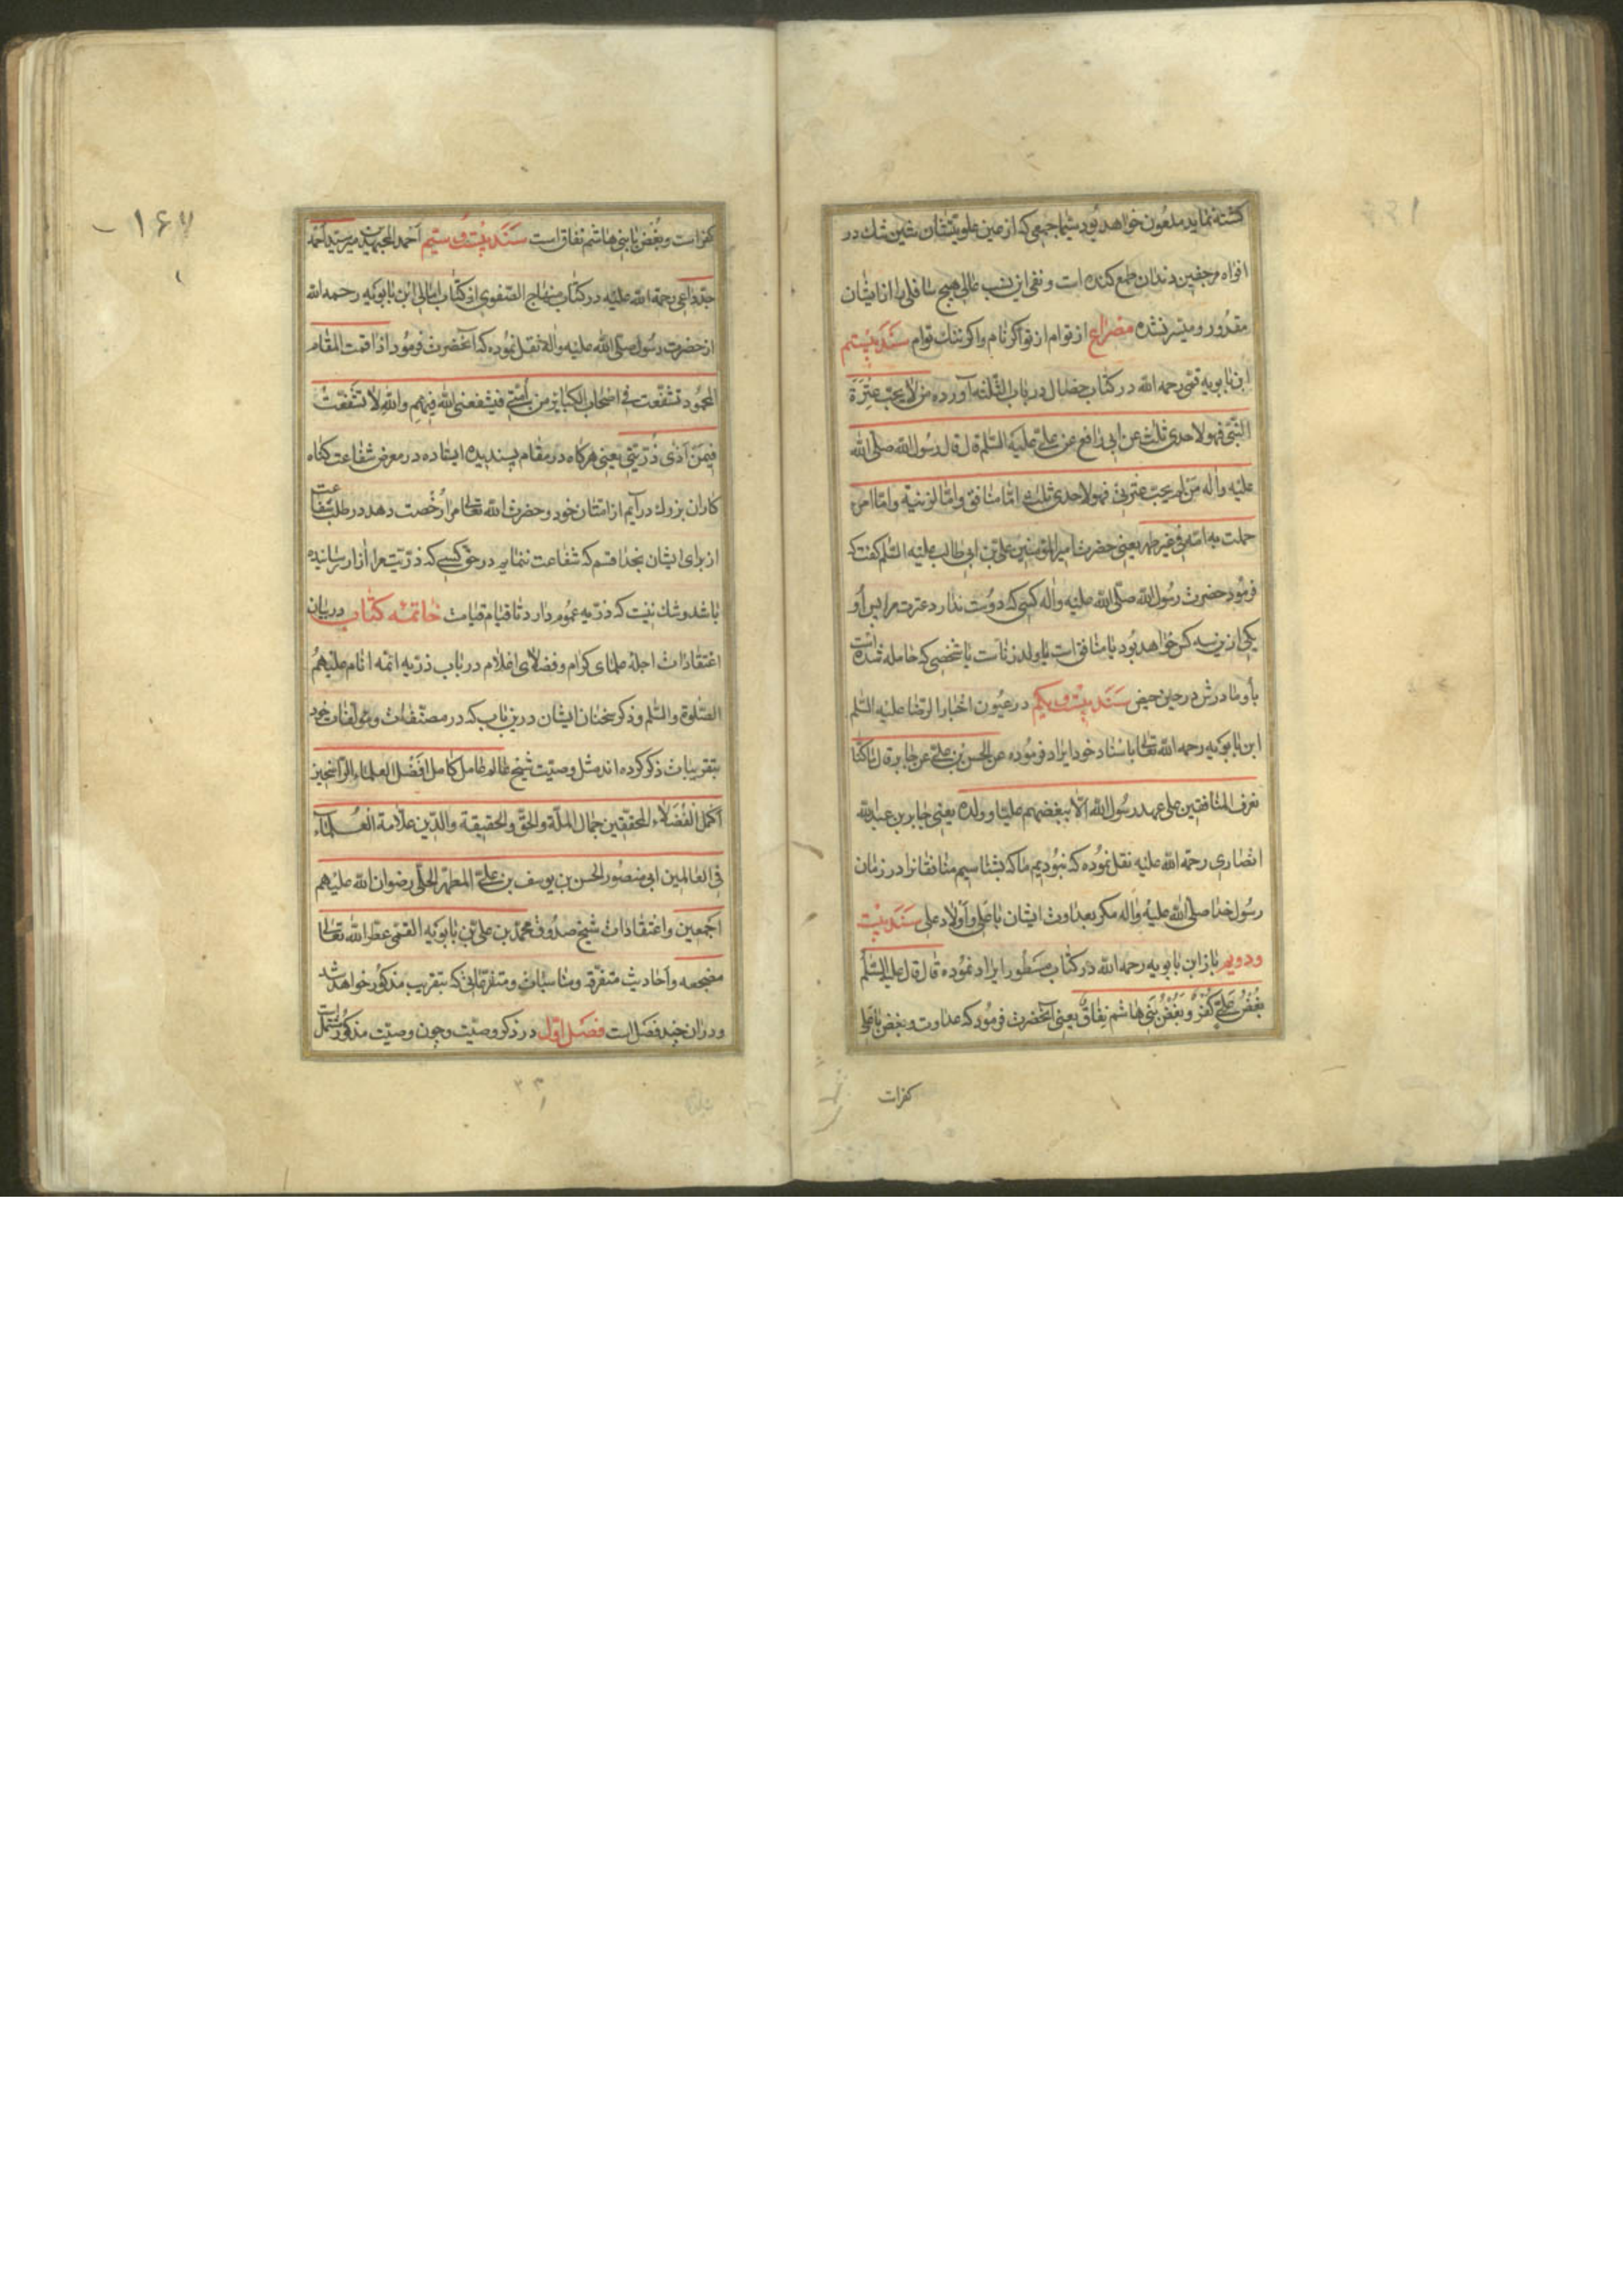 کشته نماید ملعون خواهد بود شیما جمعی که از عین علو یقین شک در
افواه مرجفین دندان طمع کنده است و نفی این نسب عالی هیچ سافلی را از ایشان
مقدور و میسر نشده مصراع از توام از تو اکر نام و اکر ننک توام سند بیستم
ابن بابویه قمی رحمه الله در کتاب خصال در باب الثلثه آورده من لا یحب عترة
النبی فهو لاحدی ثلث عن ابی رافع عن علی علیه السلم قال قال رسول الله صلی الله
علیه واله من لم یحب عترتی فهو لاحدی ثلث اما منافق واما لزنیة واما امرء
حملت به امه فی غیر طهر یعنی حضرت امیر المؤمنین علی بن ابی طالب علیه السلم کفت که
فرمود حضرت رسول الله صلی الله علیه واله کسی که دوست ندارد عترت مرا پس او
یکی ازین سه کس خواهد بود یا منافق است یا ولد زناست یا شخصی که حامله شده است
باو مادرش در حین حیض سند بیست و یکم در عیون اخبار الرضا علیه السلم
ابن بابویه رحمه الله تعالی باسناد خود ایراد فرموده عن الحسن بن علی عن جابر قال ما کنا
نعرف المنافقین علی عهد رسول الله الا ببغضهم علیا وولده یعنی جابر بن عبدالله
انصاری رحمة الله علیه نقل نموده که نبودیم ما که بشناسیم منافقانرا در زمان
رسول خدا صلی الله علیه واله مکر بعداوت ایشان با علی و اولاد علی سند بیست
ودویم باز ابن بابویه رحمه الله در کتاب مسطور ایراد نموده قال قال علیه السلم
بغض علی کفر وبغض بنی هاشم نفاق یعنی آنحضرت فرمود که عداوت و بغض با علی
کفرات
۱۶۷
کفر است و بغض با بنی هاشم نفاق است سند بیست و سیم احمد میر سید احمد
جد داعی رحمة الله علیه در کتاب منهاج الصفوی از کتاب امالی ابن بابویه رحمه الله
از حضرت رسول صلی الله علیه واله نقل نموده که آنحضرت فرمود اذا قمت المقام
المحمود تشفعت فی اصحاب الکبائر من امتی فیشفعنی الله فیهم والله لا تشفعت
فیمن آذی ذریتی یعنی هرکاه در مقام پسندیده ایستاده در معرض شفاعت کناه
کاران بزرک درآیم از امتان خود و حضرت الله تعالی مرا رخصت دهد در طلب شفاعت
از برای ایشان بخدا قسم که شفاعت ننمایم در حق کسی که ذریت مرا ازار رسانیده
باشد و شک نیست که ذریه عموم دارد تا قیام قیامت خاتمه کتاب در بیان
اعتقادات اجله علمای کرام و فضلای اعلام در باب ذریه ائمه انام علیهم
الصلوة والسلم و ذکر سخنان ایشان درین باب که در مصنفات و مؤلفات خود
بتقریبات ذکر کرده اند مثل وصیت شیخ عالم عامل کامل افضل العلماء الراسخین
اکمل الفضلاء المحققین جمال الملة والحق والحقیقة والدین علامة العلماء
فی العالمین ابی منصور الحسن بن یوسف بن علی المطهر الحلی رضوان الله علیهم
اجمعین و اعتقادات شیخ صدوق محمد بن علی بن بابویه القمی عطر الله تعالی
مضجعه و احادیث متفرقه و مناسبات و متفرعاتی که بتقریب مذکور خواهد شد
ودران چند فصل است فصل اول در ذکر وصیت و چون وصیت مذکور مشتمل